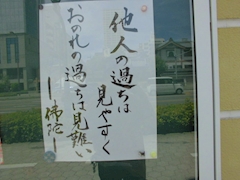 他人の過ちは
見やすく
おのれの過ちは見難い
―佛陀―